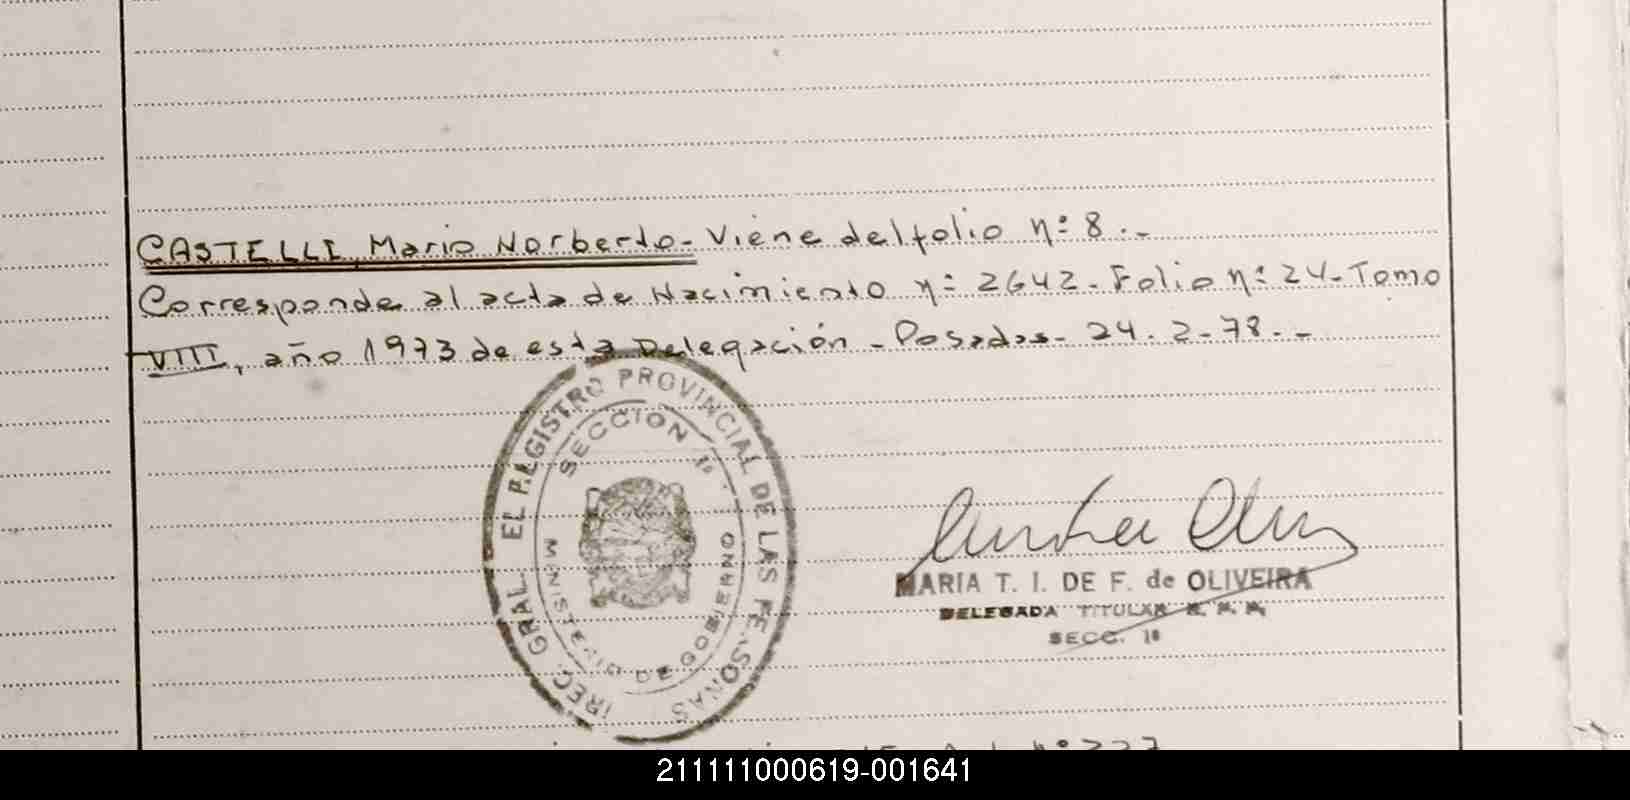 CASTELLI, Mario Norberto - Viene del folio nº 8.-
Corresponde al acta de Nacimiento nº 2642 - Folio nº 24 - Tomo
VIII, año 1973 de esta Delegación - Posadas - 24.2-78.-
IREC. GRAL. EL REGISTRO PROVINCIAL DE LAS PE.SONAS
SECCION 1ª
MINISTERIO DE GOBIERNO
MARIA T. I. DE F. de OLIVEIRA
DELEGADA TITULAR
SECC. 1ª
nº 227
211111000619-001641